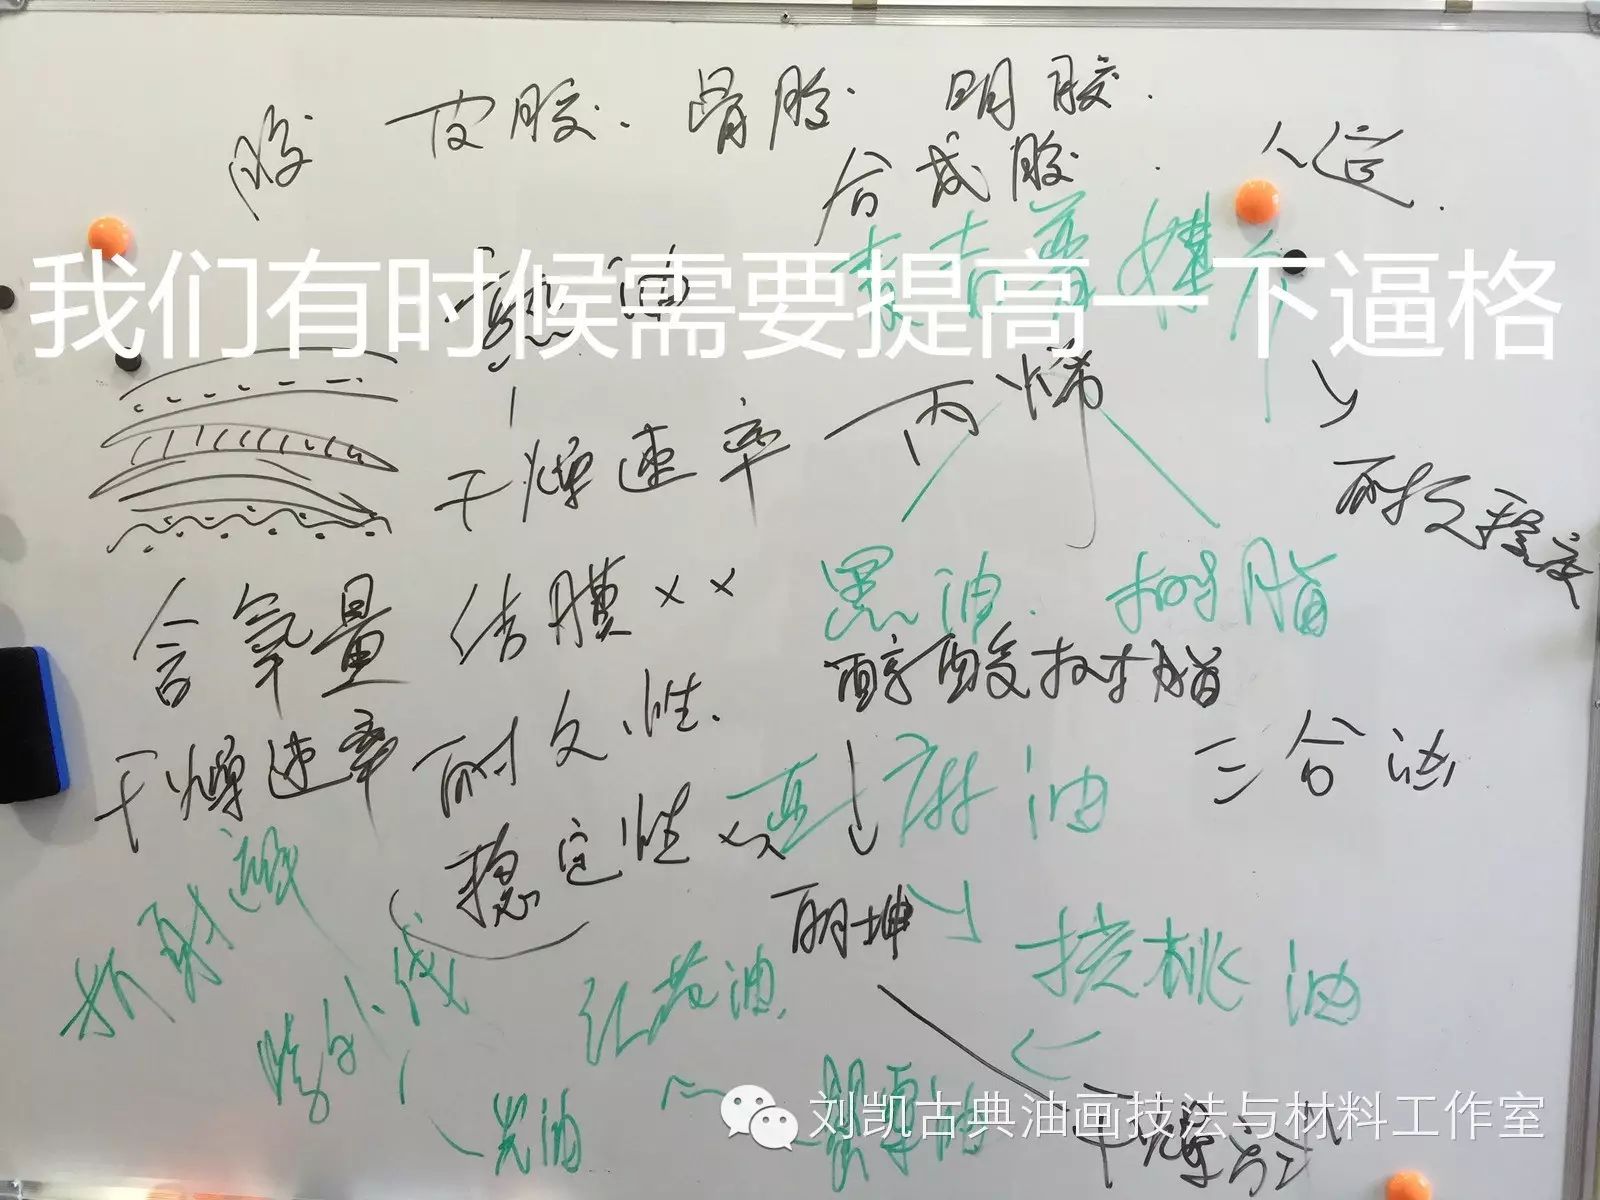 胶 皮胶. 骨胶. 明胶.
合成胶. 人造.
我们有时候需要提高一下逼格
丙烯
干燥速率
耐久程度
含氧量 结膜××
黑油. 树脂
醇酸树脂
干燥速率 耐久性.
亚麻油 三合油
稳定性
折射
丽坤
核桃油
红花油.
干燥方式
刘凯古典油画技法与材料工作室